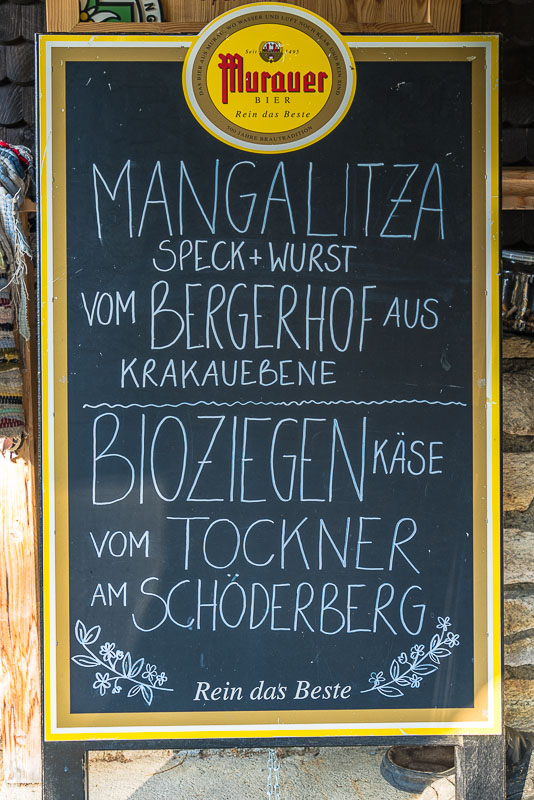 DAS BIER AUS MURAU, WO WASSER UND LUFT NOCH SO KLAR UND REIN SIND
Seit 1495
Murauer
BIER
Rein das Beste
500 JAHRE BRAUTRADITION
MANGALITZA
SPECK+WURST
VOM BERGERHOF AUS
KRAKAUEBENE
BIOZIEGENKÄSE
VOM TOCKNER
AM SCHÖDERBERG
Rein das Beste